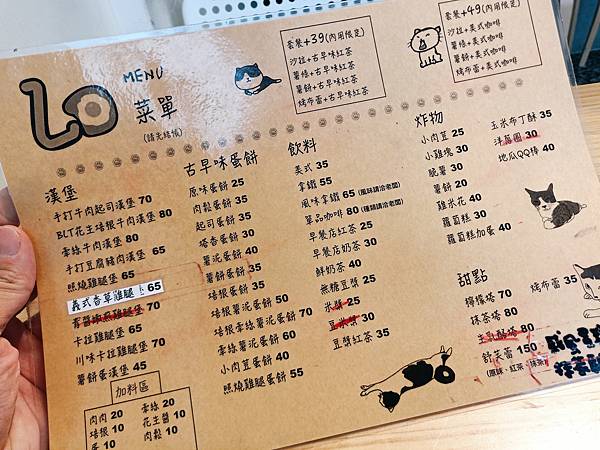 LO
MENU
菜單
(請先結帳)
套餐+39(內用限定)
沙拉+古早味紅茶
薯條+古早味紅茶
薯餅+古早味紅茶
烤布蕾+古早味紅茶
套餐+49(內用限定)
沙拉+美式咖啡
薯條+美式咖啡
薯餅+美式咖啡
烤布蕾+美式咖啡
漢堡
手打牛肉起司漢堡 70
BLT花生培根牛肉漢堡 80
雲絲牛肉漢堡 80
手打豆腐豬肉漢堡 65
照燒雞腿堡 65
義式香草雞腿堡 65
70
卡拉雞腿堡 65
川味卡拉雞腿堡 70
薯餅蛋漢堡 45
加料區
肉肉 20
培根 10
蛋 10
雲絲 20
花生醬 10
肉鬆 10
古早味蛋餅
原味蛋餅 25
肉鬆蛋餅 30
起司蛋餅 35
塔香蛋餅 30
薯泥蛋餅 40
薯餅蛋餅 35
培根蛋餅 35
培根薯泥蛋餅 50
培根雲絲薯泥蛋餅 70
雲絲薯泥蛋餅 55
小肉豆蛋餅 40
照燒雞腿蛋餅 55
飲料
美式 35
拿鐵 55
風味拿鐵 65 (風味請洽老闆)
單品咖啡 80 (種類請洽老闆)
早餐店紅茶 25
早餐店奶茶 30
鮮奶茶 40
無糖豆漿 25
米漿 25
豆米漿 30
豆漿紅茶 35
炸物
小肉豆 25
小雞塊 30
脆薯 30
薯餅 20
雞米花 40
蘿蔔糕 30
蘿蔔糕加蛋 40
玉米布丁酥 35
洋蔥圈 30
地瓜QQ棒 40
甜點
檸檬塔 70
抹茶塔 80
生乳酪塔 80
舒芙蕾 150
(原味、紅茶、抹茶)
烤布蕾 35